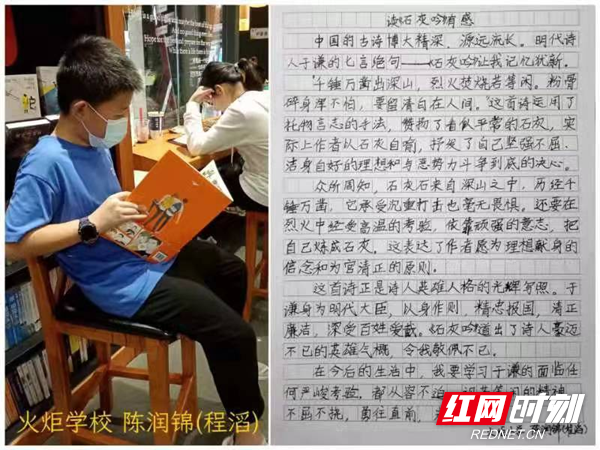 火炬学校 陈润锦(程滔)
读《石灰吟》有感
中国的古诗博大精深，源远流长。明代诗
人于谦的七言绝句——《石灰吟》让我记忆犹新。
“千锤万凿出深山，烈火焚烧若等闲。粉骨
碎身浑不怕，要留清白在人间。”这首诗运用了
托物言志的手法，赞物了看似平常的石灰，实
际上作者从石灰自喻，抒发了自己坚强不屈、
洁身自好的理想和与恶势力斗争到底的决心。
众所周知，石灰石来自深山之中，历经千
锤万凿，它承受沉重打击也毫无畏惧。还要在
烈火中经受高温的考验，依靠顽强的意志，把
自己炼成石灰，这表达了作者愿为理想献身的
信念和为官清正的原则。
这首诗正是诗人英雄人格的光辉写照。于
谦身为明代大臣，以身作则，精忠报国，清正
廉洁，深受百姓爱戴。《石灰吟》道出了诗人豪迈
不已的英雄气概，令我敬佩不已。
在今后的生活中，我要学习于谦的面临任
何严峻考验，都从容不迫
不屈不挠，勇往直前
红网时刻
REDNET.CN